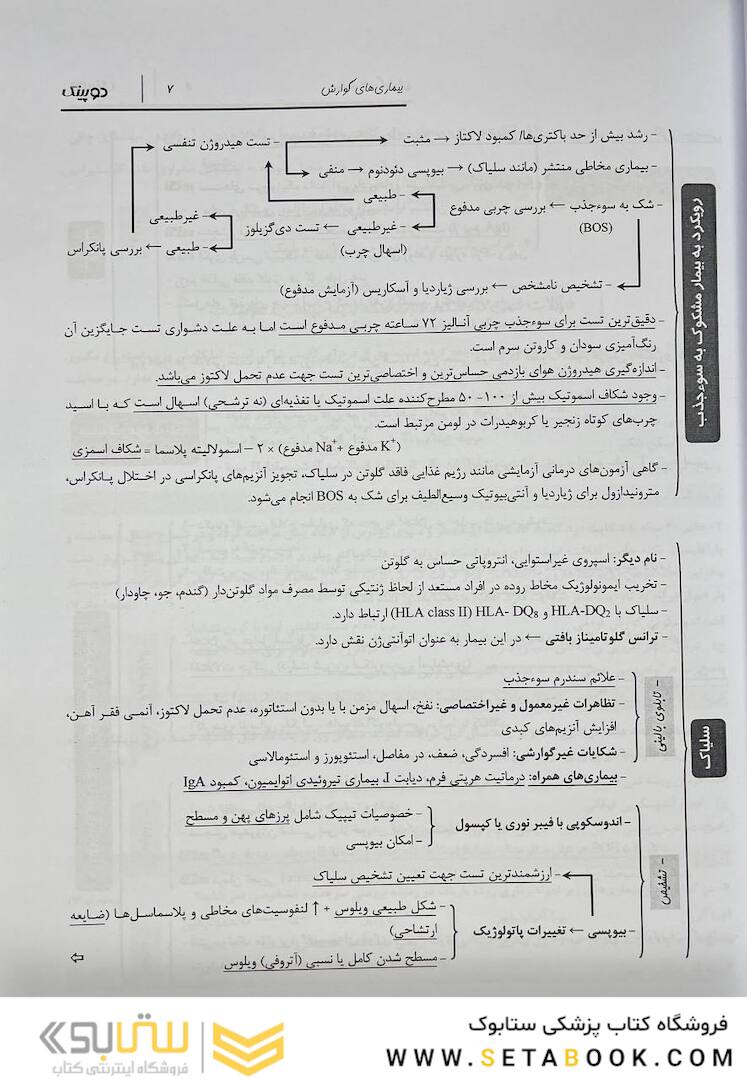 بیماری‌های گوارش
۷
دوپینگ
رویکرد به بیمار مشکوک به سوءجذب
- رشد بیش از حد باکتری‌ها/ کمبود لاکتاز → مثبت
- تست هیدروژن تنفسی
- بیماری مخاطی منتشر (مانند سلیاک) → بیوپسی دئودنوم → منفی
- شک به سوءجذب ← بررسی چربی مدفوع
(BOS)
- طبیعی
- غیرطبیعی ← تست دی‌گزیلوز
(اسهال چرب)
- غیرطبیعی
- طبیعی ← بررسی پانکراس
- تشخیص نامشخص ← بررسی ژیاردیا و آسکاریس (آزمایش مدفوع)
- دقیق‌ترین تست برای سوءجذب چربی آنالیز ۷۲ ساعته چربی مدفوع است اما به علت دشواری تست جایگزین آن
رنگ‌آمیزی سودان و کاروتن سرم است.
- اندازه‌گیری هیدروژن هوای بازدمی حساس‌ترین و اختصاصی‌ترین تست جهت عدم تحمل لاکتوز می‌باشد.
- وجود شکاف اسموتیک بیش از ۱۰۰- ۵۰ مطرح‌کننده علت اسموتیک یا تغذیه‌ای (نه ترشحی) اسهال است که با اسید
چرب‌های کوتاه زنجیر یا کربوهیدرات در لومن مرتبط است.
(K⁺ مدفوع + Na⁺ مدفوع) × ۲ – اسمولالیته پلاسما = شکاف اسمزی
- گاهی آزمون‌های درمانی آزمایشی مانند رژیم غذایی فاقد گلوتن در سلیاک، تجویز آنزیم‌های پانکراسی در اختلال پانکراس،
مترونیدازول برای ژیاردیا و آنتی‌بیوتیک وسیع‌الطیف برای شک به BOS انجام می‌شود.
سلیاک
- نام دیگر: اسپروی غیراستوایی، انتروپاتی حساس به گلوتن
- تخریب ایمونولوژیک مخاط روده در افراد مستعد از لحاظ ژنتیکی توسط مصرف مواد گلوتن‌دار (گندم، جو، چاودار)
- سلیاک با HLA-DQ₂ و HLA- DQ₈ (HLA class II) ارتباط دارد.
- ترانس گلوتامیناز بافتی ← در این بیمار به عنوان اتوآنتی‌ژن نقش دارد.
- تابلوی بالینی
- علائم سندرم سوءجذب
- تظاهرات غیرمعمول و غیراختصاصی: نفخ، اسهال مزمن با یا بدون استئاتوره، عدم تحمل لاکتوز، آنمی فقر آهن،
افزایش آنزیم‌های کبدی
- شکایات غیرگوارشی: افسردگی، ضعف، درد مفاصل، استئوپورز و استئومالاسی
- بیماری‌های همراه: درماتیت هرپتی فرم، دیابت I، بیماری تیروئیدی اتوایمیون، کمبود IgA
- تشخیص
- اندوسکوپی با فیبر نوری یا کپسول
- خصوصیات تیپیک شامل پرزهای پهن و مسطح
- امکان بیوپسی
- ارزشمندترین تست جهت تعیین تشخیص سلیاک
- بیوپسی ← تغییرات پاتولوژیک
- شکل طبیعی ویلوس + ↑ لنفوسیت‌های مخاطی و پلاسماسل‌ها (ضایعه
ارتشاحی)
- مسطح شدن کامل یا نسبی (آتروفی) ویلوس
⇦
فروشگاه کتاب پزشکی ستابوک
WWW.SETABOOK.COM
ستابوک
فروشگاه اینترنتی کتاب